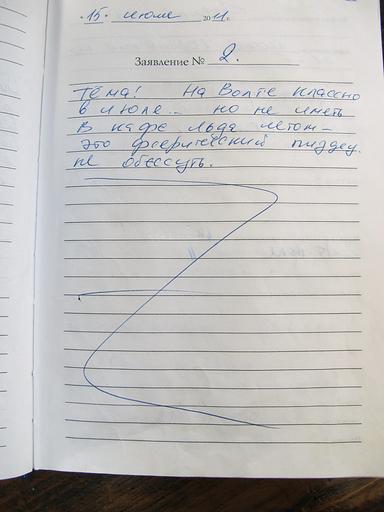 "15" июля 2011 г.
Заявление № 2.
Тёма! На Волге классно
в июле... но не иметь
в кафе льда летом –
это феерический пиздец.
не обессуть.